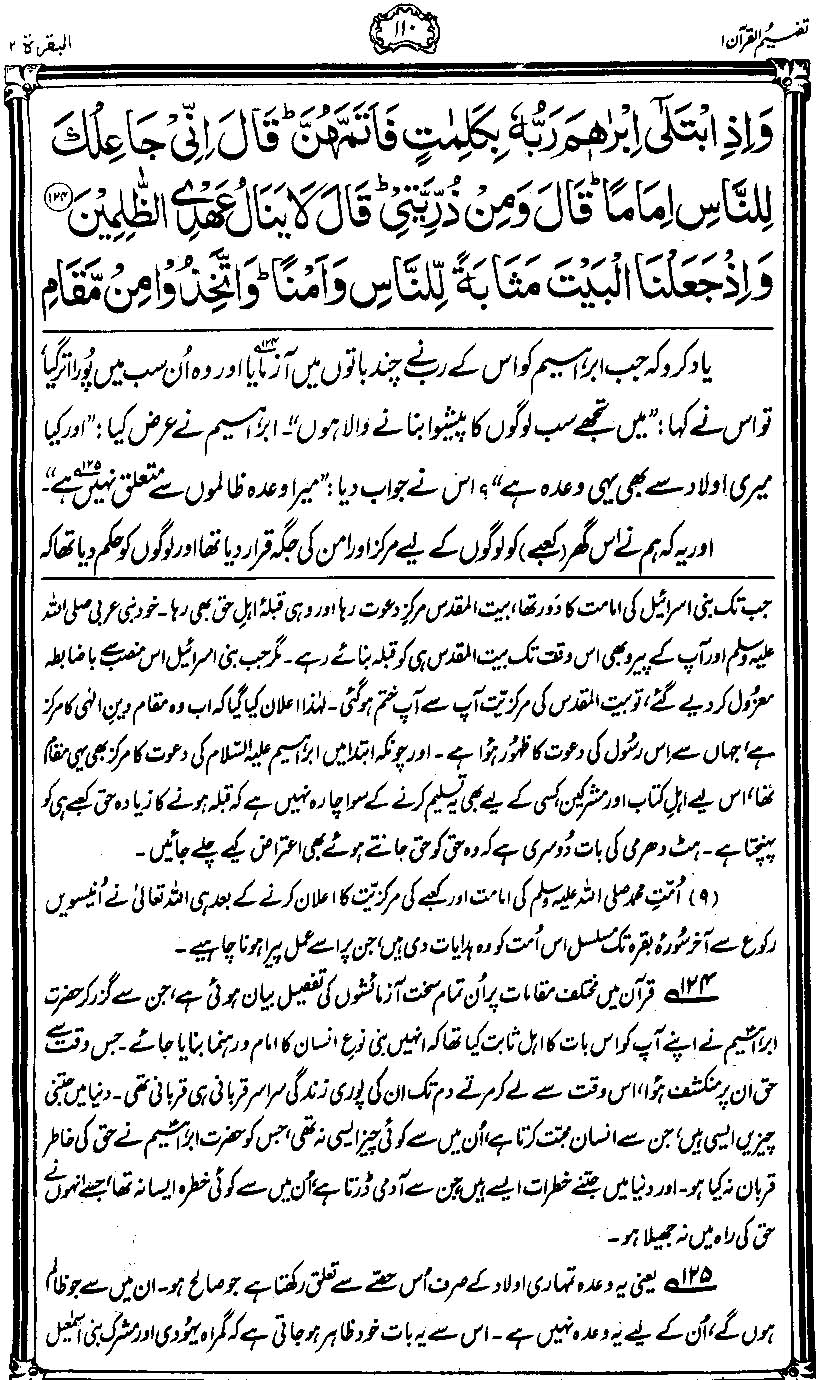 تفہیم القرآن ۱
۱۱۰
البقرۃ ۲
وَاِذِ ابْتَلٰٓى اِبْرٰهٖمَ رَبُّهٗ بِكَلِمٰتٍ فَاَتَمَّهُنَّ ؕ قَالَ اِنِّىْ جَاعِلُكَ
لِلنَّاسِ اِمَامًا ؕ قَالَ وَمِنْ ذُرِّيَّتِىْ ؕ قَالَ لَا يَنَالُ عَهْدِى الظّٰلِمِيْنَ ﴿۱۲۴﴾
وَاِذْ جَعَلْنَا الْبَيْتَ مَثَابَةً لِّلنَّاسِ وَاَمْنًا ؕ وَاتَّخِذُوْا مِنْ مَّقَامِ
یاد کرو کہ جب ابراہیم کو اس کے رب نے چند باتوں میں آزمایا۱۲۴ اور وہ اُن سب میں پُورا اتر گیا،
تو اس نے کہا: ”میں تجھے سب لوگوں کا پیشوا بنانے والا ہوں“۔ ابراہیم نے عرض کیا: ”اور کیا
میری اولاد سے بھی یہی وعدہ ہے“؟ اس نے جواب دیا: ”میرا وعدہ ظالموں سے متعلق نہیں ہے۱۲۵“۔
اور یہ کہ ہم نے اس گھر (کعبے) کو لوگوں کے لیے مرکز اور امن کی جگہ قرار دیا تھا اور لوگوں کو حکم دیا تھا کہ
جب تک بنی اسرائیل کی امامت کا دَور تھا، بیت المقدس مرکزِ دعوت رہا اور وہی قبلۂ اہلِ حق بھی رہا۔ خود نبی عربی صلی اللہ
علیہ وسلم اور آپ کے پیرو بھی اس وقت تک بیت المقدس ہی کو قبلہ بنائے رہے۔ مگر جب بنی اسرائیل اس منصب سے باضابطہ
معزول کر دیے گئے، تو بیت المقدس کی مرکزیّت آپ سے آپ ختم ہو گئی۔ لہٰذا اعلان کیا گیا کہ اب وہ مقام دینِ الٰہی کا مرکز
ہے، جہاں سے اِس رسُول کی دعوت کا ظہُور ہُوا ہے۔ اور چونکہ ابتدا میں ابراہیم علیہ السّلام کی دعوت کا مرکز بھی یہی مقام
تھا، اس لیے اہلِ کتاب اور مشرکین کسی کے لیے بھی یہ تسلیم کرنے کے سوا چارہ نہیں ہے کہ قبلہ ہونے کا زیادہ حق کعبے ہی کو
پہنچتا ہے۔ ہٹ دھرمی کی بات دُوسری ہے کہ وہ حق کو حق جانتے ہوئے بھی اعتراض کیے چلے جائیں۔
(۹) اُمّتِ محمد صلی اللہ علیہ وسلم کی امامت اور کعبے کی مرکزیّت کا اعلان کرنے کے بعد ہی اللہ تعالیٰ نے اُنیسویں
رکوع سے آخر سُورۂ بقرہ تک مسلسل اس اُمت کو وہ ہدایات دی ہیں، جن پر اسے عمل پیرا ہونا چاہیے۔
۱۲۴ قرآن میں مختلف مقامات پر اُن تمام سخت آزمائشوں کی تفصیل بیان ہوئی ہے، جن سے گزر کر حضرت
ابراہیم نے اپنے آپ کو اس بات کا اہل ثابت کیا تھا کہ انہیں بنی نوعِ انسان کا امام و رہنما بنایا جائے۔ جس وقت سے
حق ان پر منکشف ہُوا، اس وقت سے لے کر مرتے دم تک ان کی پوری زندگی سراسر قربانی ہی قربانی تھی۔ دنیا میں جتنی
چیزیں ایسی ہیں، جن سے انسان محبّت کرتا ہے، اُن میں سے کوئی چیز ایسی نہ تھی، جس کو حضرت ابراہیم نے حق کی خاطر
قربان نہ کیا ہو۔ اور دنیا میں جتنے خطرات ایسے ہیں، جن سے آدمی ڈرتا ہے، اُن میں سے کوئی خطرہ ایسا نہ تھا، جسے انہوں نے
حق کی راہ میں نہ جھیلا ہو۔
۱۲۵ یعنی یہ وعدہ تمہاری اولاد کے صرف اُس حصّے سے تعلق رکھتا ہے جو صالح ہو۔ ان میں سے جو ظالم
ہوں گے، اُن کے لیے یہ وعدہ نہیں ہے۔ اس سے یہ بات خود ظاہر ہو جاتی ہے کہ گمراہ یہُودی اور مشرک بنی اسمٰعیل